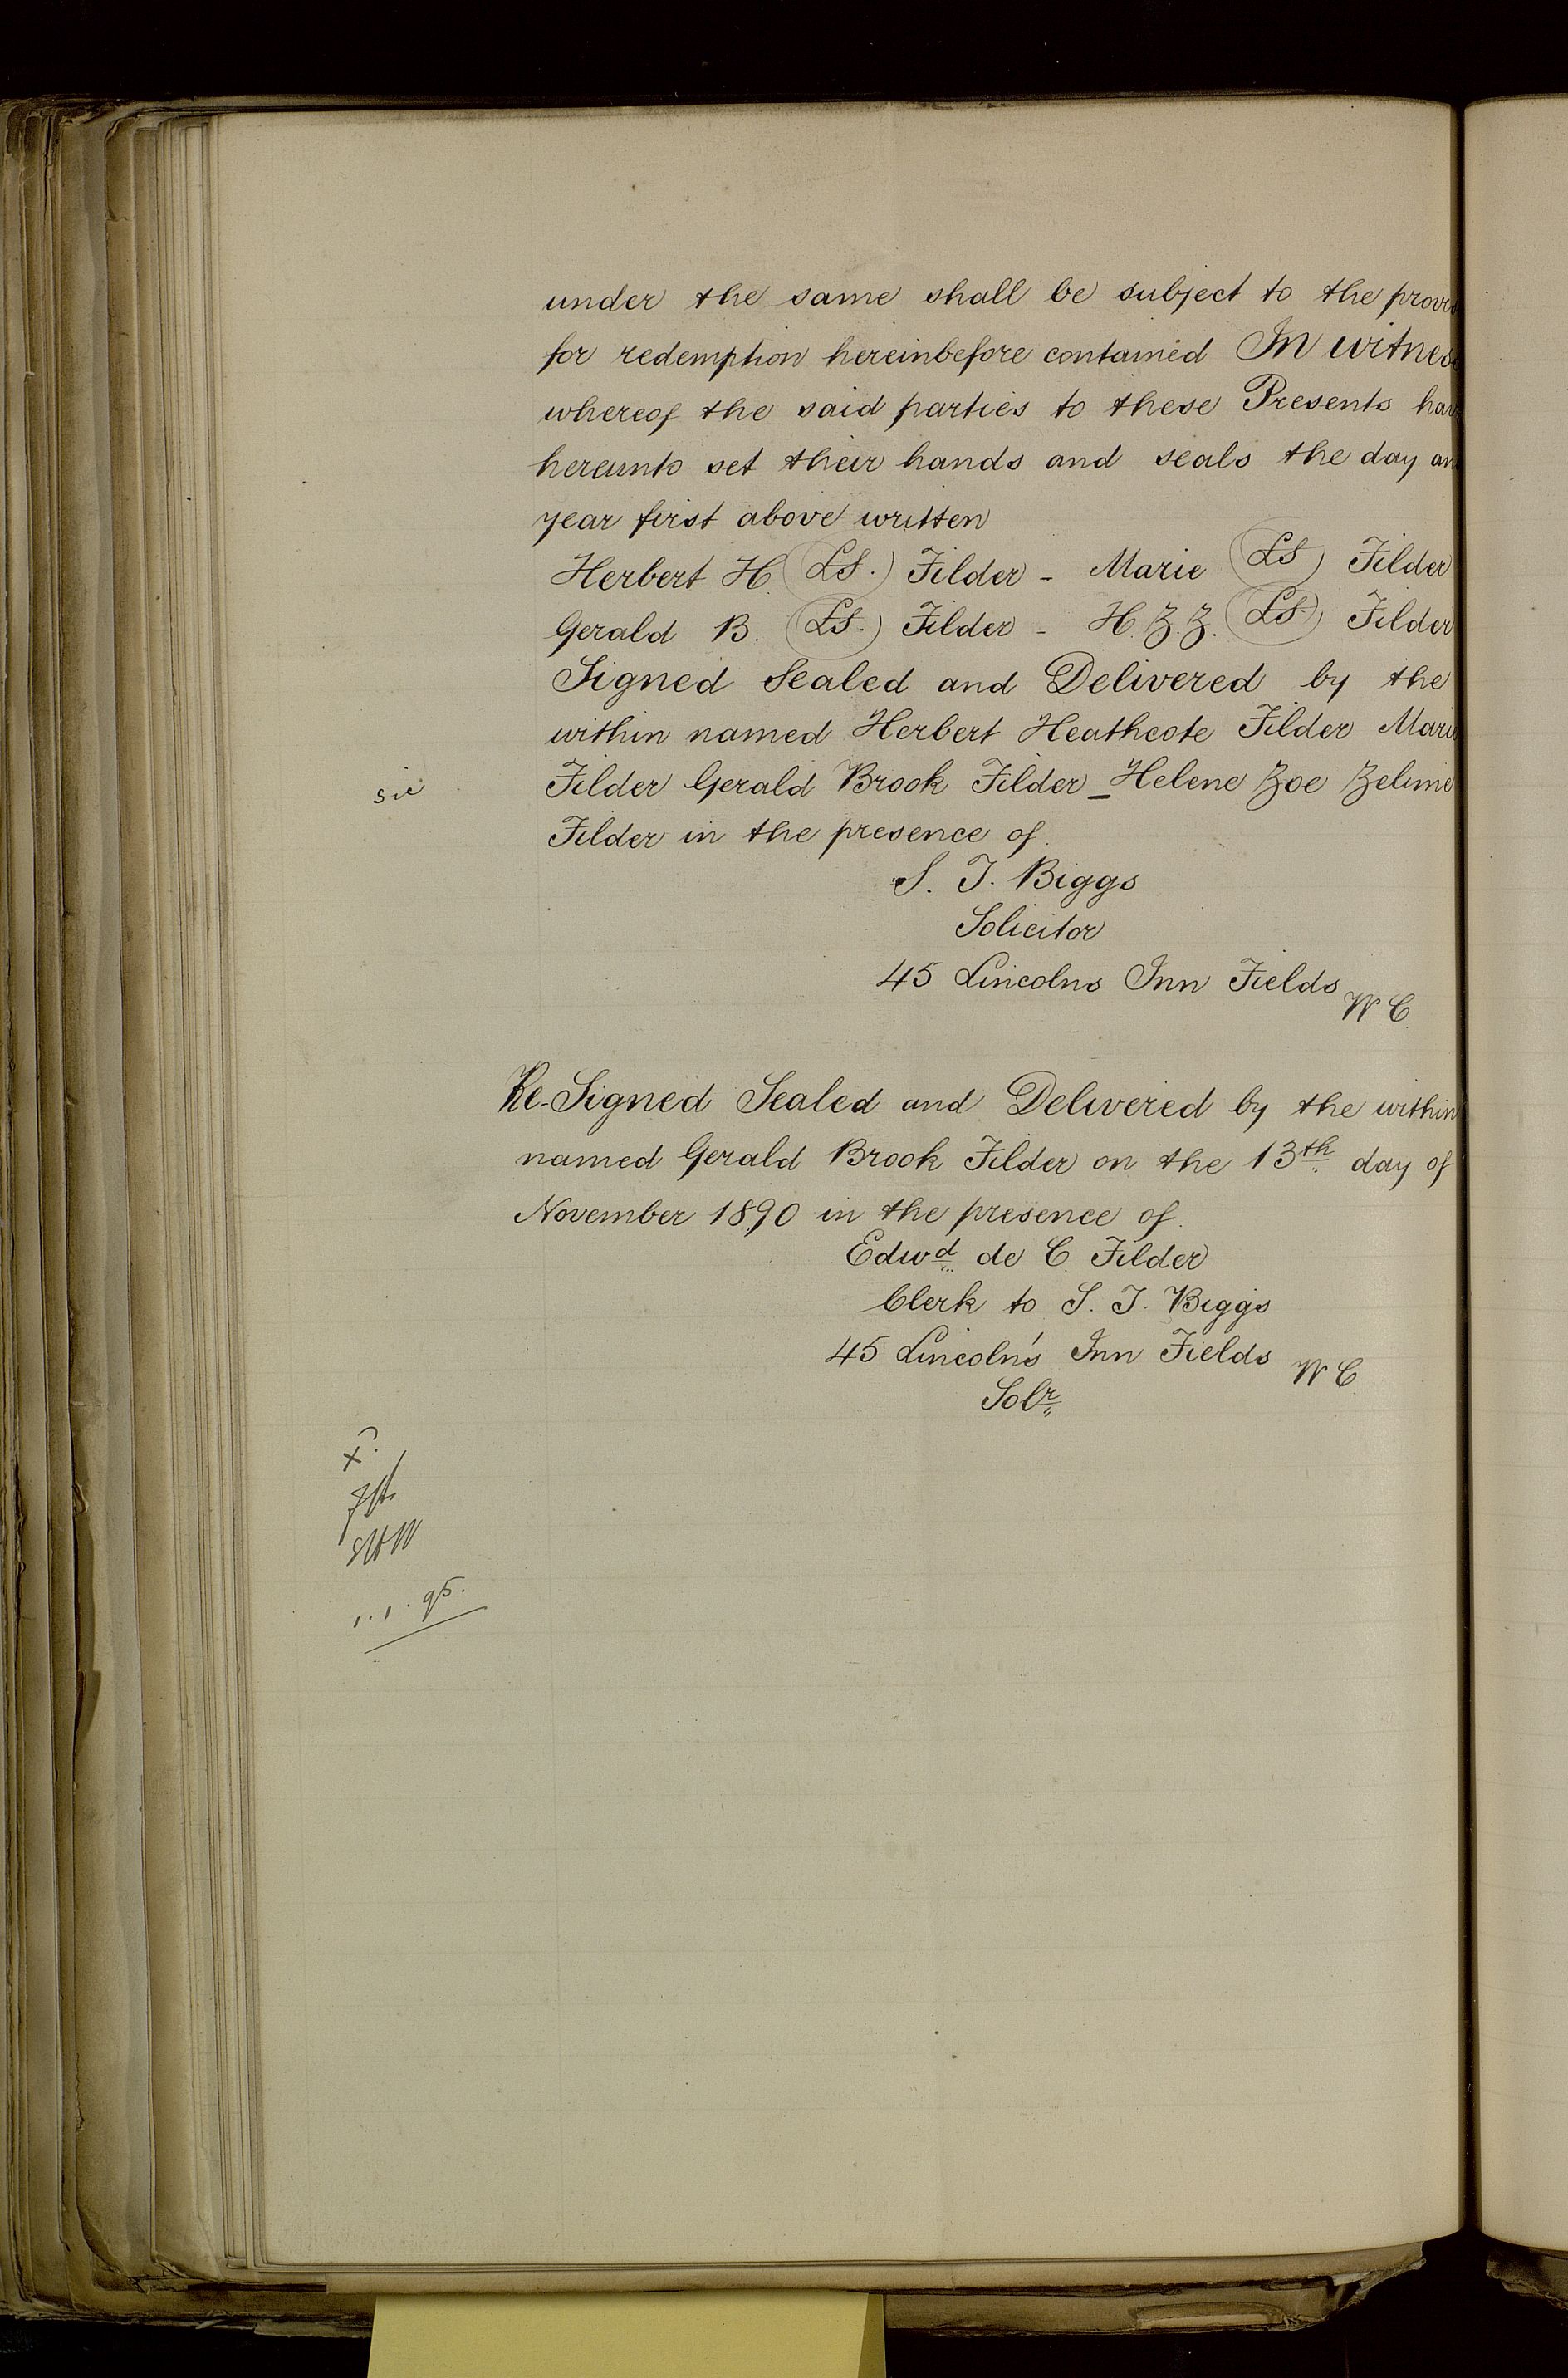 under the same shall be subject to the
for redemption hereinbefore contained In witness
whereof the said parties to these Presents have
hereunto set their hands and seals the day and
year first above written
Herbert H. (LS.) Filder - Marie (LS) Filder
Gerald B. (LS.) Filder - H. Z. Z. (LS) Filder
Signed Sealed and Delivered by the
within named Herbert Heathcote Filder Marie
sic
Filder Gerald Brook Filder _ Helene Zoe Zelime
Filder in the presence of.
S. T. Biggs
Solicitor
45 Lincolns Inn Fields W C.
Re-Signed Sealed and Delivered by the within
named Gerald Brook Filder on the 13th day of
November 1890 in the presence of.
Edwd de C. Filder
Clerk to S. T. Biggs
45 Lincoln's Inn Fields W C.
Solr
1.1.95.